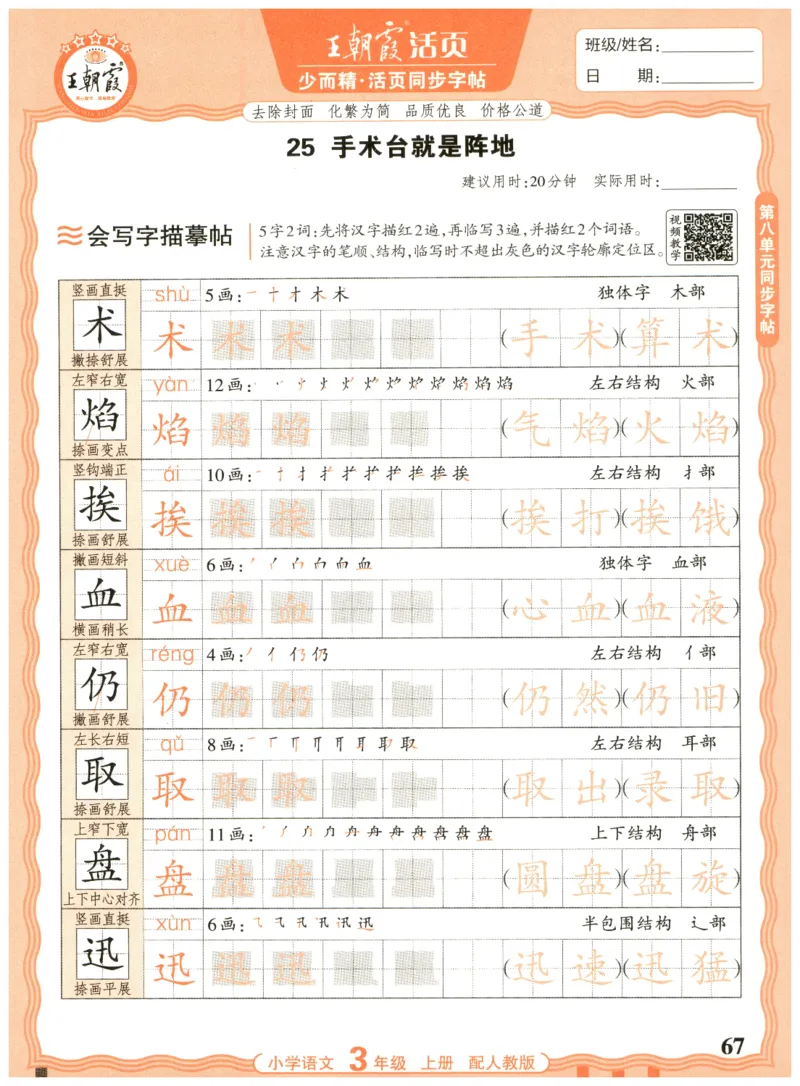 王朝霞®活页
少而精·活页同步字帖
王朝霞
班级/姓名:
日 期:
去除封面 化繁为简 品质优良 价格公道
25 手术台就是阵地
建议用时:20分钟 实际用时:
会写字描摹帖
5字2词:先将汉字描红2遍,再临写3遍,并描红2个词语。
注意汉字的笔顺、结构,临写时不超出灰色的汉字轮廓定位区。
视频教学
第八单元同步字帖
竖画直挺
术
撇捺舒展
shù 5画: 一 十 才 木 术 独体字 木部
术 术 术 (手术)(算术)
左窄右宽
焰
捺画变点
yàn 12画: 左右结构 火部
焰 焰 焰 (气焰)(火焰)
竖钩端正
挨
捺画舒展
ái 10画: 左右结构 扌部
挨 挨 挨 (挨打)(挨饿)
撇画短斜
血
横画稍长
xuè 6画: 独体字 血部
血 血 血 (心血)(血液)
左窄右宽
仍
撇画舒展
réng 4画: 左右结构 亻部
仍 仍 仍 (仍然)(仍旧)
左长右短
取
捺画舒展
qǔ 8画: 左右结构 耳部
取 取 取 (取出)(录取)
上窄下宽
盘
上下中心对齐
pán 11画: 上下结构 舟部
盘 盘 盘 (圆盘)(盘旋)
竖画直挺
迅
捺画平展
xùn 6画: 半包围结构 辶部
迅 迅 迅 (迅速)(迅猛)
67
小学语文 3年级 上册 配人教版